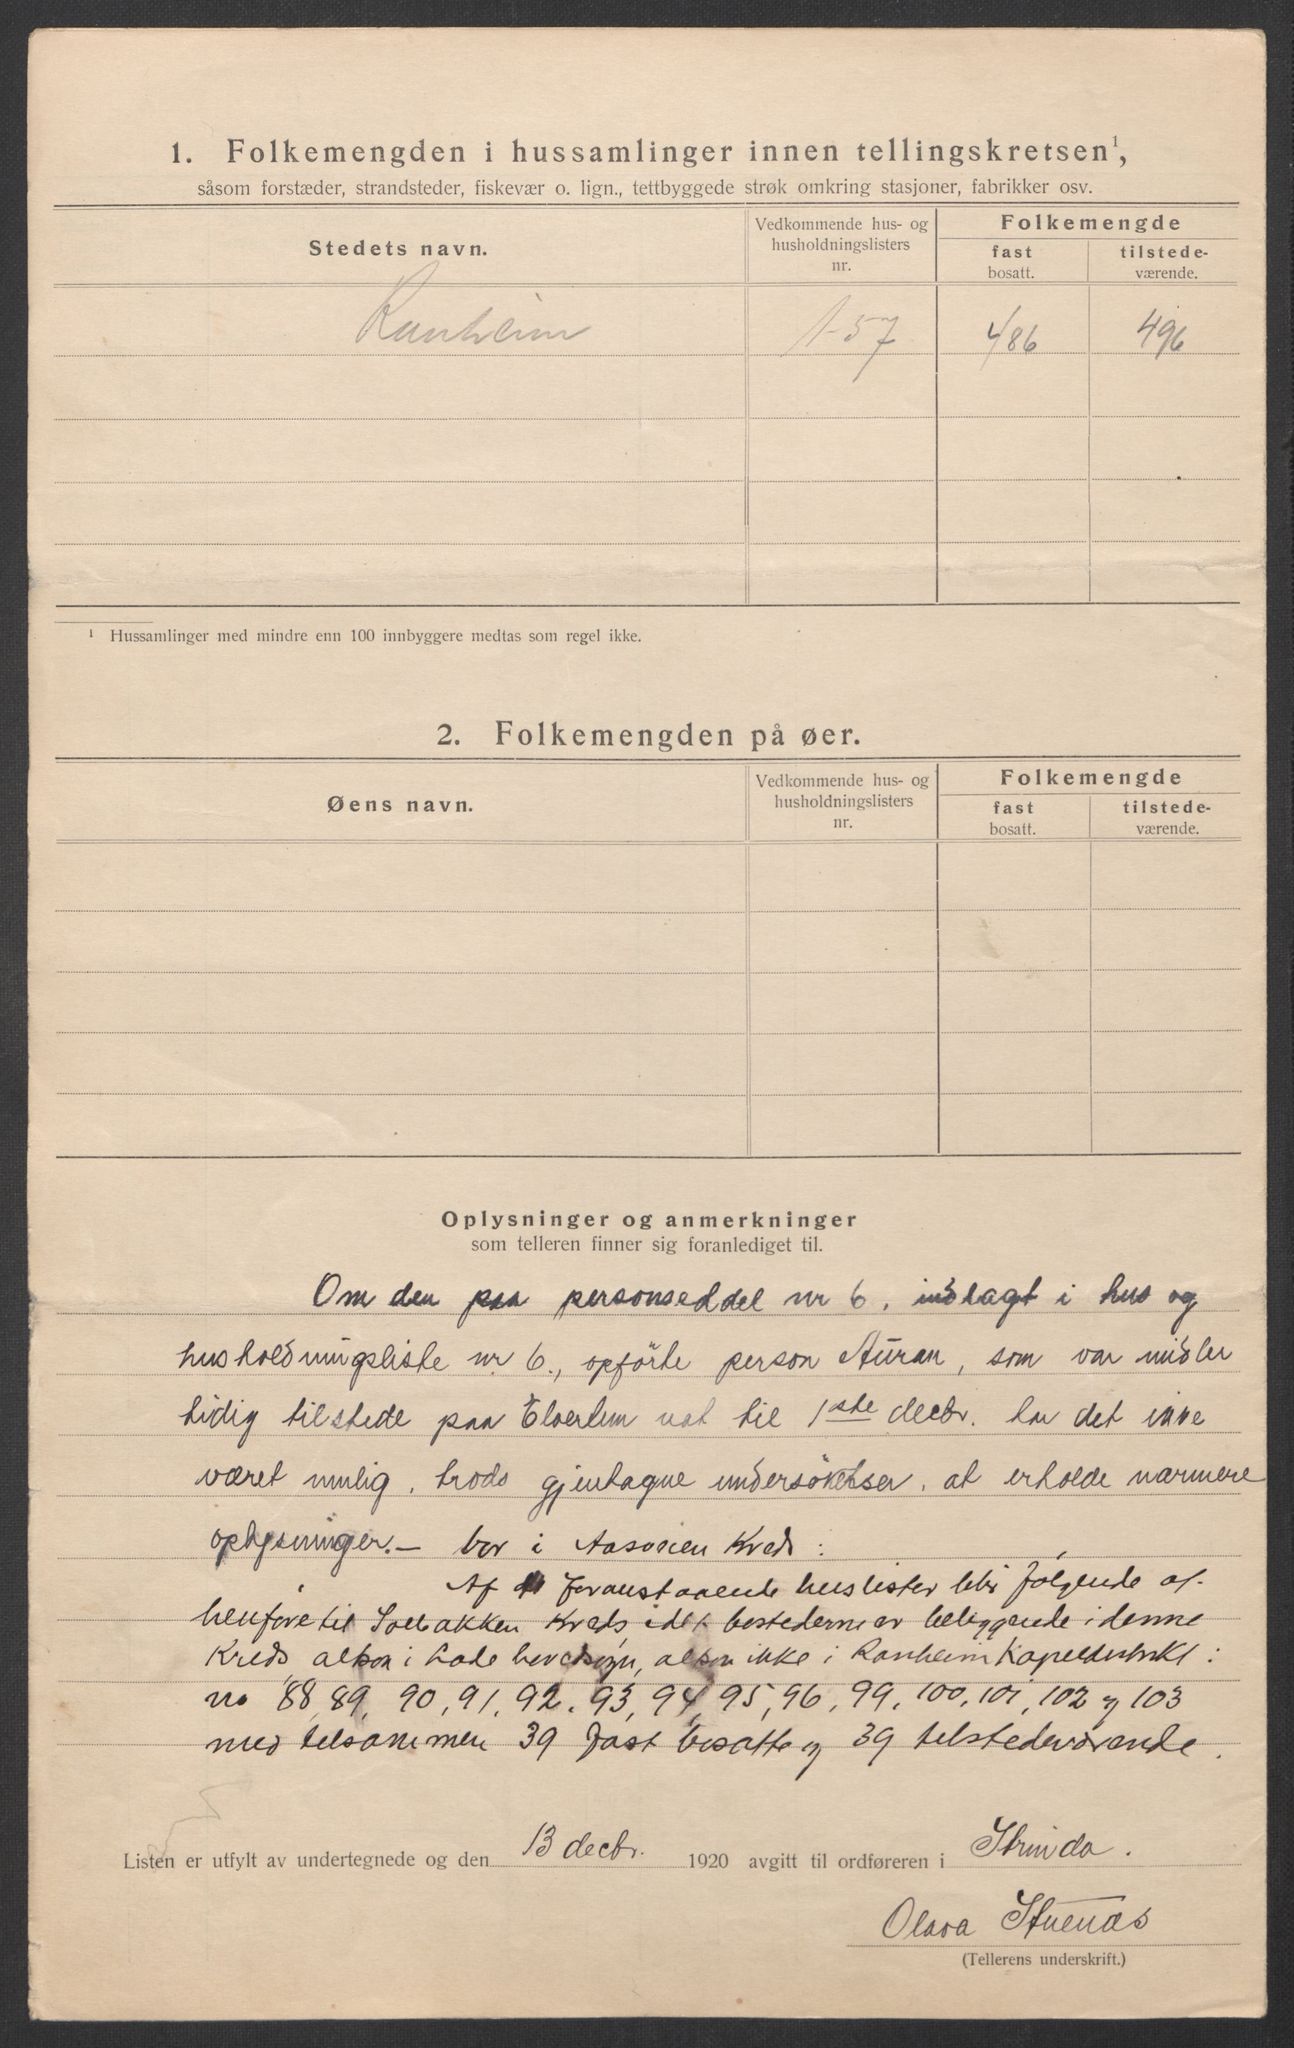 1. Folkemengden i hussamlinger innen tellingskretsen¹,
såsom forstæder, strandsteder, fiskevær o. lign., tettbyggede strøk omkring stasjoner, fabrikker osv.
Stedets navn.
Vedkommende hus- og
husholdningslisters
nr.
Folkemengde
fast
bosatt.
tilstede-
værende.
Ranheim 1-57 486 496
¹ Hussamlinger med mindre enn 100 innbyggere medtas som regel ikke.
2. Folkemengden på øer.
Øens navn.
Vedkommende hus- og
husholdningslisters
nr.
Folkemengde
fast
bosatt.
tilstede-
værende.
Oplysninger og anmerkninger
som telleren finner sig foranlediget til.
Om den paa personseddel nr 6, indlagt i hus og
husholdningsliste nr 6., opførte person Auran, som var midler
tidig tilstede paa nat til 1ste decbr. har det ikke
været mulig, trods gjentagne undersøkelser, at erholde nærmere
oplysninger.— bor i Kreds:
Af foranstaaende huslister blir følgende at
henføre til Solbakken Kreds, idet bostederne er beliggende i denne
Kreds, altsaa i Lade, altsaa ikke i Ranheim Kapeldistrikt:
no 88, 89, 90, 91, 92, 93, 94, 95, 96, 99, 100, 101, 102 og 103
med tilsammen 39 fast bosatte og 39 tilstedeværende.
Listen er utfylt av undertegnede og den 13 decbr. 1920 avgitt til ordføreren i Strinda.
Olava Stuenæs
(Tellerens underskrift.)